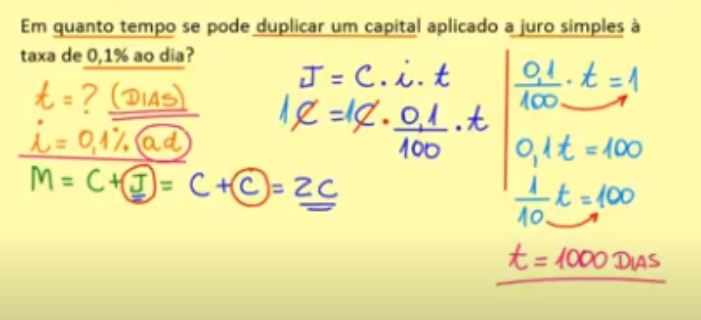 Em quanto tempo se pode duplicar um capital aplicado a juro simples à
taxa de 0,1% ao dia?
t = ? (DIAS)
i = 0,1% ad
M = C + J = C + C = 2C
J = C . i . t
1C = 1C . 0,1/100 . t
0,1/100 . t = 1
0,1t = 100
1/10 t = 100
t = 1000 DIAS